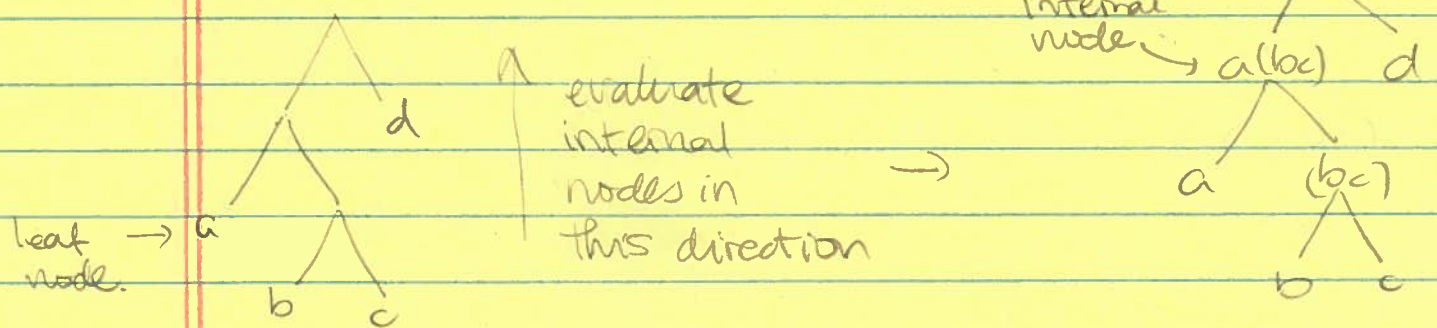 d
a
b
c
leaf →
node.
evaluate
internal
nodes in
this direction
→
internal
node →
a(bc)
d
a
(bc)
b
c